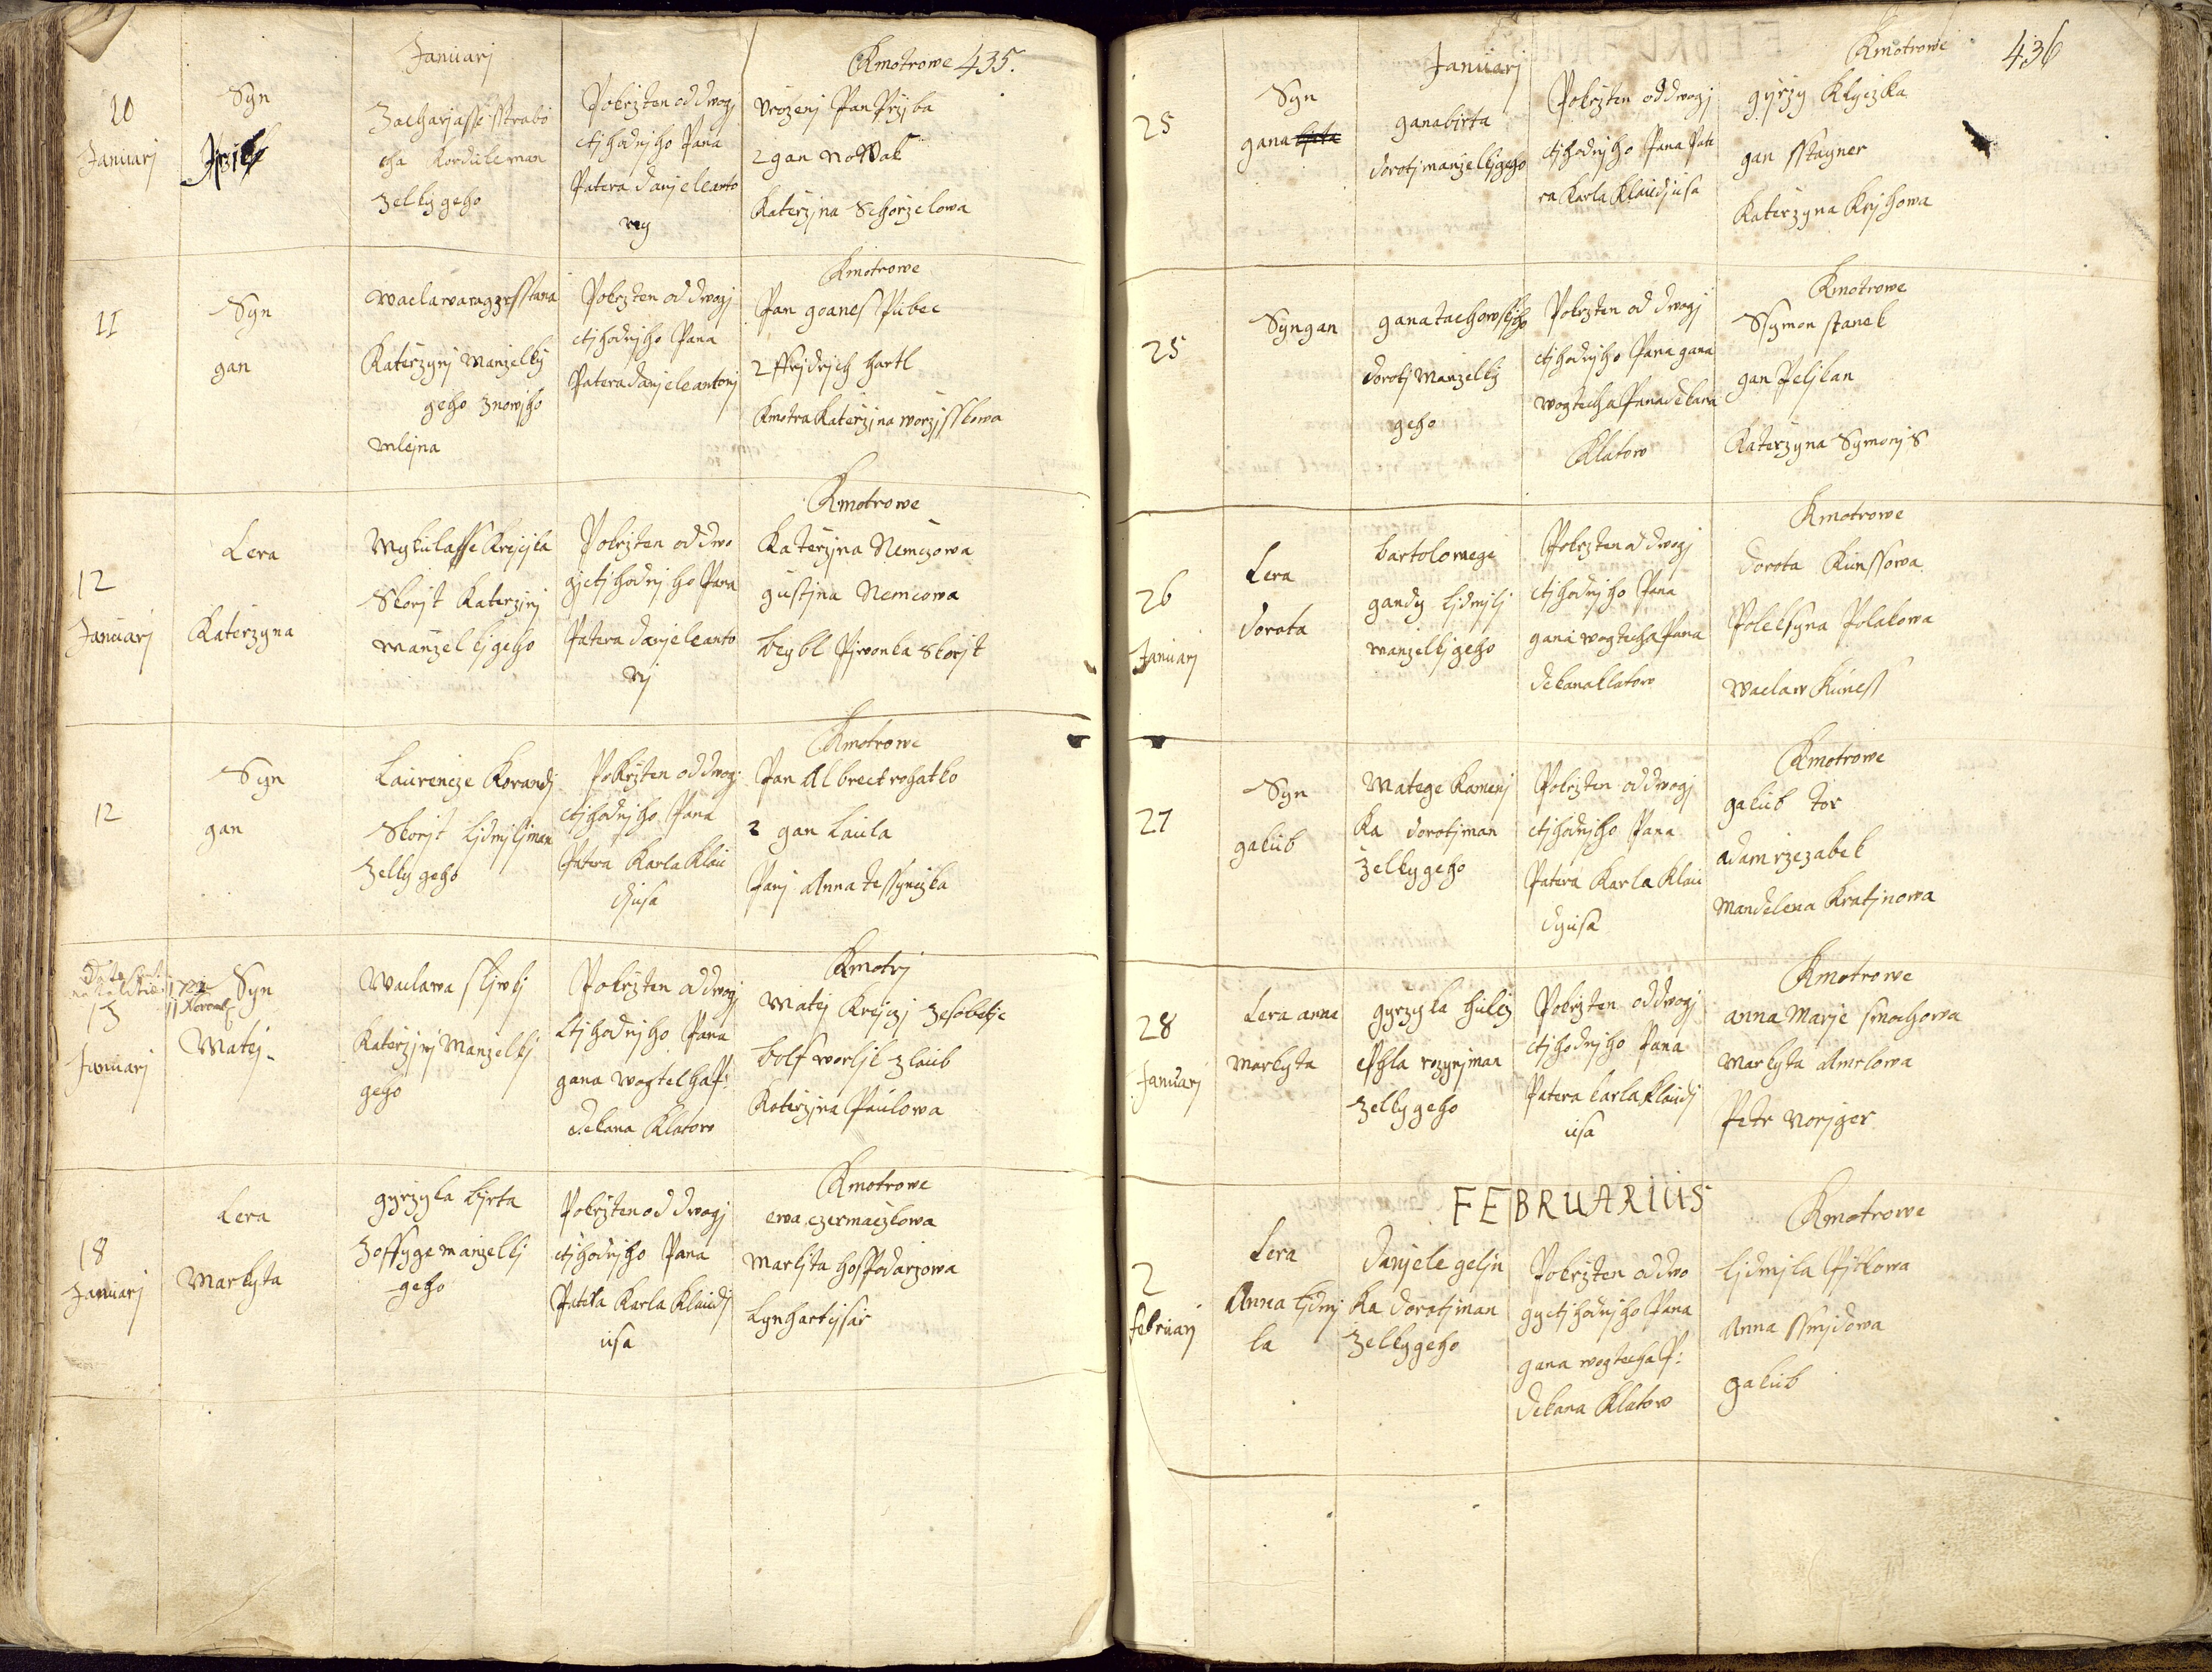 Januarj
Kmotrowe 435.
10
Januarj
Syn
Zacharjasse
cha Kordule man
zelky geho
Pokrzten od dwogj
ctihodnjho Pana
Patera danjele anto
ny
Urozenj Pan Przjba
2 gan noWak
Katerzjna Schorzelowa
11
Syn
gan
waclawa
Katerzynj Manzelky
geho Znowjho
mlejna
Pokrzten od dwogj
ctihodnjho Pana
Patera danjele antonj
Kmotrowe
Pan goanes Pubec
2 ffrjdrjch hartl
Kmotra Katerzjna worzjsskowa
12
Januarj
Lera
Katerzyna
Mykulasse Krejcjka
Skorjt Katerzinj
manzelkj geho
Pokrzten od dwo
gj ctihodnjho Pana
Patera danjele anto
nj
Kmotrowe
Katerzjna Nemczowa
gustjna Nemcowa
beybl Pjwonka Skorjt
12
Syn
gan
Laurencze Korandj
Skorjt Ljdmjlj man
zelky geho
Pokrzten od dwogj
ctihodnjho Pana
Patera Karla Klau
djusa
Kmotrowe
Pan Albrect rohatko
2 gan Laula
Panj Anna
13
Januarj
Syn
Matej
Waclawa sljwkj
Katerzjnj Manzelkj
geho
Pokrzten od dwogj
ctihodnjho Pana
gana wogtecha P:
dekana Klatow
Kmotrj
Matej Krejczj
bolf worljk z laub
Katerzjna Paulowa
18
Januarj
Lera
Markyta
gyrzyka bjrta
Zoffyge manzelkj
geho
Pokrzten od dwogj
ctihodnjho Pana
Patera Karla Klaudj
usa
Kmotrowe
ewa czermaczkowa
Markjta hospodarzowa
Lynhart
Januarj
Kmotrowe
436
25
Syn
gana
gana birta
dorotj manzelkj geho
Pokrzten od dwogj
ctihodnjho Pana Pate
ra Karla Klaudjusa
gyrzy Klyczka
gan sstagner
Katerzyna Krjhowa
25
Syn gan
gana tachowskjho
dorotj Manzelky
geho
Pokrzten od dwogj
ctihodnjho Pana gana
wogtecha Pana dekana
Klatow
Kmotrowe
Ssymon stanek
gan Peljkan
Katerzyna Symonjs
26
Januarj
Lera
dorota
bartolomege
gandy ljdmjlj
manzelkj geho
Pokrzten od dwogj
ctihodnjho Pana
gana wogtecha Pana
dekana klatow
Kmotrowe
dorota Kunssowa
Poleksyna Polakowa
Waclaw Kuness
27
Syn
gakub
Matege Kamenj
ka dorotj man
zelky geho
Pokrzten od dwogj
ctihodnjho Pana
Patera Karla Klau
dyusa
Kmotrowe
gakub tor
adam rzezabek
Mandelena Kratjnowa
28
Januarj
Lera anna
Markyta
gyrzyka
rozynj man
zelky geho
Pokrzten od dwogj
ctihodnjho Pana
Patera karla Klaudj
usa
Kmotrowe
anna Marje smochowa
Markyta
Petr Norjger
FEBRUARIUS
2
februarj
Lera
Anna Ljdmj
la
Danjele geljn
ka dorotj man
zelky geho
Pokrzten od dwo
gy ctihodnjho Pana
gana wogtecha P:
dekana Klatow
Kmotrowe
Ljdmjla
Anna ssmjdowa
gakub